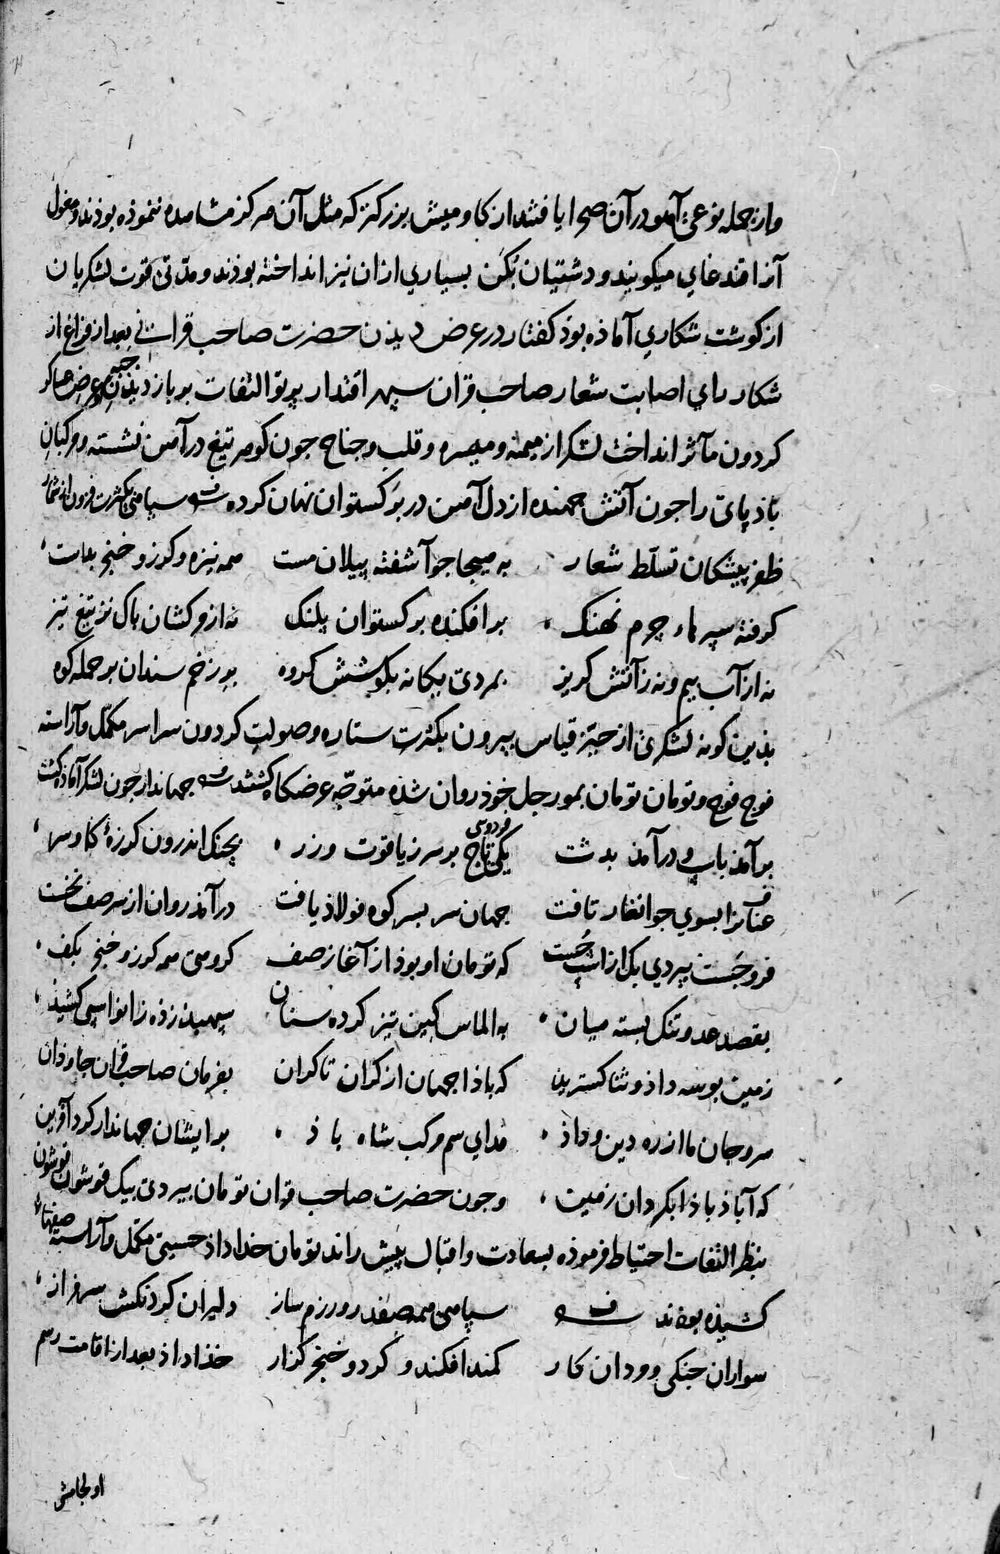 وازجمله نوعی آهو در آن صحرا یافتند از کاومیش بزرکتر که مثل آن هرکز مشاهده ننموذه بوذند و مغول
آنرا قندغای میکویند و دشتیان بُکَن بسیاری ازان نیز انداخته بوذند و مدتی قوت لشکریان
از کوشت شکاری آماذه بوذ کفتار در عرض دیذن حضرت صاحب قرانی بعد از فراغ از
شکار رای اصابت شعار صاحب قران سپهر اقتدار پرتو التفات بر باز دیذن جیبه و عرض عساکر
کردون مآثر انداخت لشکر از میمنه و میسره و قلب و جناح جون کوهر تیغ در آهن نشسته و مرکبان
باذپای را جون آتش جهنده از دل آهن در برکستوان نهان کرده سپاهی بکثرت فزون از شمار
ظفر پیشکان تسلّط شعار به هیجا جو آشفته پیلان مست همه نیزه و کرز و خنجر بدست
کرفته سپرهاء جرم نهنک بر افکنده برکستوان پلنک نه از وکشان باک نز تیغ تیز
نه از آب بیم و نه ز آتش کریز بمردی یکانه بکوشش کروه بر زخم سندان بر حمله کوه
بذین کونه لشکری از حیّز قیاس بیرون بکثرت ستاره و صولت کردون سراسر مکمّل و آراسته
فوج فوج و تومان تومان بمورجل خوذ روان شده متوجّه عرضکاه کشتند جهاندار جون لشکر آماذه کشت
بر آمذ باسب و در آمذ بدشت فردوسی یکی تاج بر سر ز یاقوت و زر بجنک اندرون کرزهٔ کاوسر
عنانرا بسوی جوانغار تافت جهان سر بسر کوه فولاذ یافت درآمذ روان از سر صف نخست
فرو جَست بیردی بک از اسپ جُست که تومان او بوذ از آغاز صف کروهی همه کرز و خنجر بکف
بقصد عدو تنک بسته میان به الماس کین تیز کرده سنان سپهبد زذه زانو اسپی کشیذ
زمین بوسه داذ و ثنا کستریذ که باذا جهان از کران تا کران بفرمان صاحب قران جاوذان
سر و جان ما از ره دین و داذ فدای سم مرکب شاه باذ بر ایشان جهاندار کرد آفرین
که آباذ باذا بکردان زمین و جون حضرت صاحب قران تومان بیردی بیک قوشون قوشون
بنظر التفات احتیاط فرموذه بسعادت و اقبال پیش راند تومان خداداذ حسینی مکمل و آراسته صفها
کشیذه بوذند سپاهی همه صفدر و رزم ساز دلیران کردنکش سرفراز
سواران جنکی و مردان کار کمند افکند و کرد و خنجر کذار خذاداذ بعد از اقامت رسم
اولجامشی